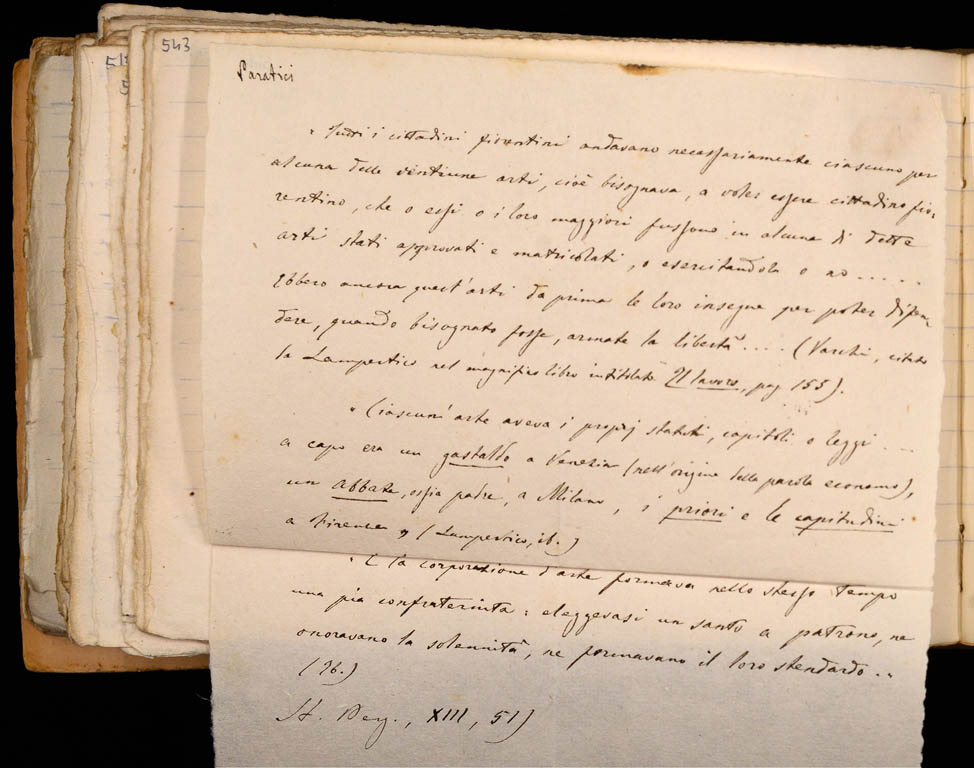 543
51
5
Paratici
"Tutti i cittadini fiorentini andavano necessariamente ciascuno per
alcuna delle ventiune arti, cioè bisognava, a voler essere cittadino fio-
rentino, che o essi o i loro maggiori fussono in alcuna di dette
arti stati approvati e matricolati, o esercitandola o no .....
Ebbero ancora quest'arti da prima le loro insegne per poter difen-
dere, quando bisognato fosse, armate la libertà .... (Varchi, citato
la Lampertico nel magnifico libro intitolato Il lavoro, pag 155).
"Ciascun'arte aveva i proprj statuti, capitoli o leggi ....
a capo era un gastaldo a Venezia (nell'origine della parola economo),
un abbate, ossia padre, a Milano, i priori e le capitudini
a Firenze" (Lampertico, ib.)
"E la corporazione d'arte formava nello stesso tempo
una pia confraternita: eleggevasi un santo a patrono, ne
onoravano la solennità, ne formavano il loro stendardo ..
(Ib.)
XIII, 51)